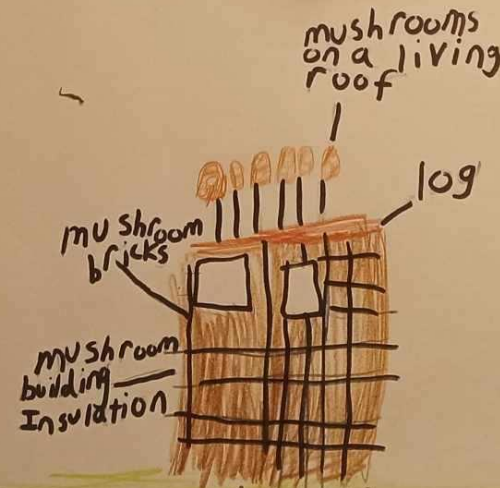 mushrooms
on a living
roof
log
mushroom
bricks
mushroom
building
Insulation